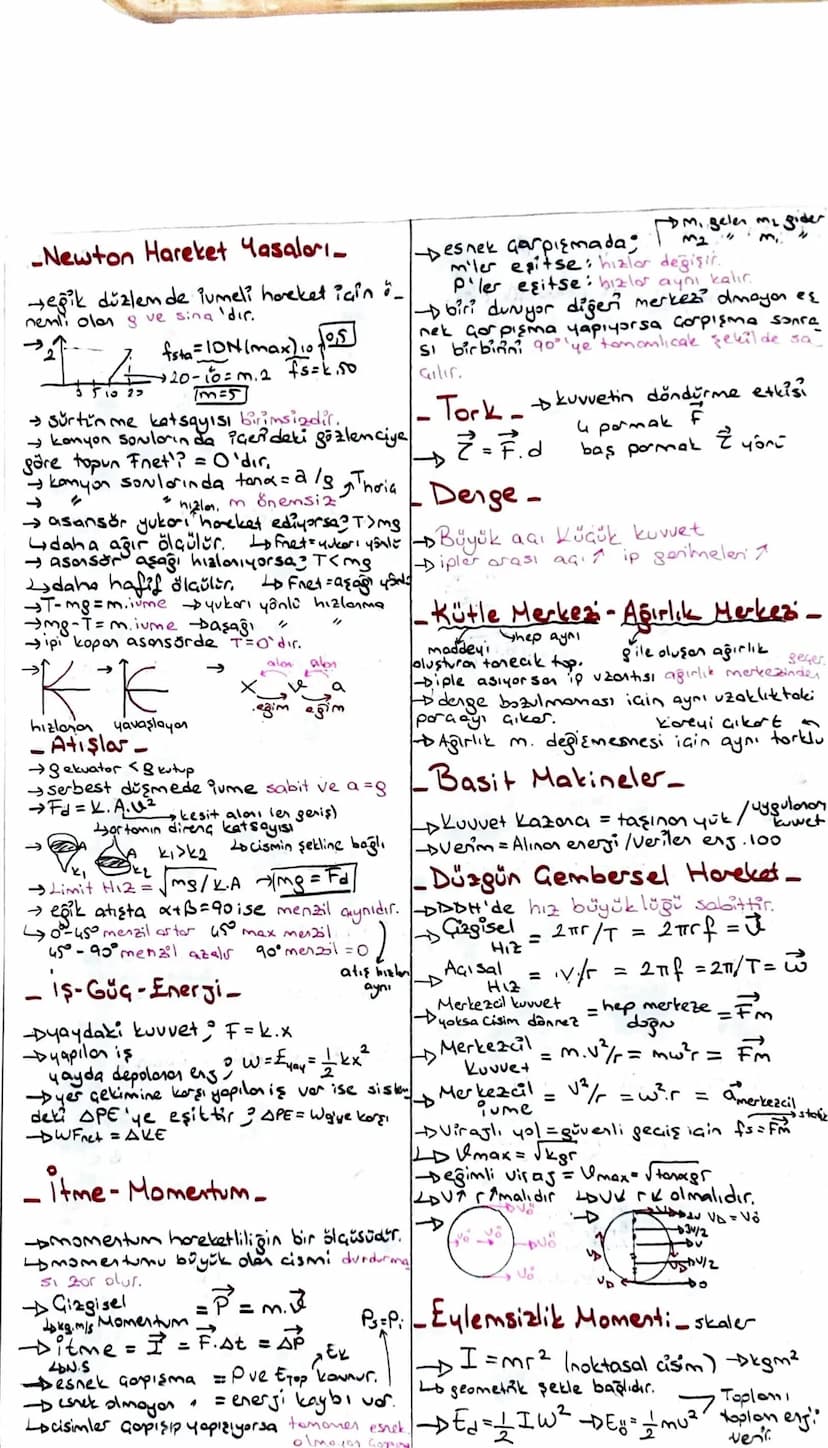 - Newton Hareket Yasaları -
→ eğik düzlemde ivmeli hareket için ö-
nemli olan g ve sina'dır.
→ 2
fsta = 10N (max)
0,5
20-10 = m.2 fs = k.50
m=5
→ sürtünme katsayısı birimsizdir.
→ kamyon sorularında içerideki gözlemciye
göre topun Fnet'? = 0'dır.
→ kamyon sorularında tanα = a/g
→ " " hızları, m önemsiz
→ asansör yukarı hareket ediyorsa; T>mg
↳ daha ağır ölçülür. ↳ Fnet = yukarı yönlü
→ asansör aşağı hızlanıyorsa; T<mg
↳ daha hafif ölçülür. ↳ Fnet = aşağı yönlü
→ T-mg = m.ivme → yukarı yönlü hızlanma
→ mg-T = m.ivme → aşağı " "
→ ipi kopan asansörde T=0'dır.
alan alan
x v a
eğim eğim
hızlanan yavaşlayan
- Atışlar -
→ g ekvator < g kutup
→ serbest düşmede ivme sabit ve a=g
→ Fd = k.A.v²
→ kesit alanı (en geniş)
↳ ortamın direnç katsayısı
→ A A k1>k2 ↳ cismin şekline bağlı
k1 k2
→ Limit Hız = √mg/k.A → mg = Fd
→ eğik atışta α+β=90 ise menzil aynıdır.
↳ 0°-45° menzil artar 45° max menzil
45°-90° menzil azalır 90° menzil = 0
atış hızları
aynı
- İş-Güç-Enerji -
→ yaydaki kuvvet; F=k.x
→ yapılan iş
yayda depolanan enj; W = Eyay = 1/2 kx²
→ yer çekimine karşı yapılan iş var ise sistem
deki ΔPE'ye eşittir; ΔPE = Wg'ye karşı
→ WFnet = ΔKE
- İtme - Momentum -
→ momentum hareketliliğin bir ölçüsüdür.
↳ momentumu büyük olan cismi durdurma
sı zor olur.
→ Çizgisel Momentum = P = m.v
↳ kg.m/s
Ps=Pi
→ itme = I = F.Δt = ΔP
↳ N.s
Ek
→ esnek çarpışma = P ve Etop korunur.
→ esnek olmayan " = enerji kaybı var.
↳ cisimler çarpışıp yapışıyorsa tamamen esnek
olmayan
→ m1 gelen m2 gider
m2 " m1 "
→ esnek çarpışmada;
m'ler eşitse: hızlar değişir.
P'ler eşitse: hızlar aynı kalır.
→ biri duruyor diğeri merkezi olmayan es
nek çarpışma yapıyorsa çarpışma sonra
sı birbirini 90°'ye tamamlıcak şekilde sa
çılır.
- Tork - → kuvvetin döndürme etkisi
4 parmak F
→ τ = F.d baş parmak τ yönü
- Denge -
→ Büyük açı küçük kuvvet
→ ipler arası açı ↑ ip gerilmeleri ↑
- Kütle Merkezi - Ağırlık Merkezi -
↳ hep aynı
maddeyi
oluşturan tanecik top.
g ile oluşan ağırlık
→ iple asıyorsan ip uzantısı ağırlık merkezinden geçer.
→ denge bozulmaması için aynı uzaklıktaki
parçayı çıkar. kareyi çıkart
→ Ağırlık m. değişmemesi için aynı torklu
- Basit Makineler -
→ Kuvvet Kazancı = taşınan yük / uygulanan kuvvet
→ verim = Alınan enerji / Verilen enj. 100
- Düzgün Çembersel Hareket -
→ DÇH'de hız büyüklüğü sabittir.
→ Çizgisel Hız = 2πr/T = 2πrf = v
→ Açısal Hız = v/r = 2πf = 2π/T = ω
→ Merkezcil kuvvet yoksa cisim dönmez = hep merkeze doğru = Fm
→ Merkezcil Kuvvet = m.v²/r = mω²r = Fm
→ Merkezcil ivme = v²/r = ω².r = a merkezcil
→ statik
→ Virajlı yol = güvenli geçiş için fs = Fm
↳ Vmax = √kgr
→ eğimli viraj = Vmax = √tanαgr
↳ V↑ r↑ malıdır ↳ V↓ r↓ olmalıdır.
→ Vö Vö Vö Vö Vö
→ 2V VD = Vö
3V/2
V
V/2
0
VD VD
- Eylemsizlik Momenti - skaler
→ I = mr² (noktasal cisim) → kgm²
↳ geometrik şekle bağlıdır.
→ Ed = 1/2 Iω² → Eö = 1/2 mv² Toplamı
toplam enj'i
verir.